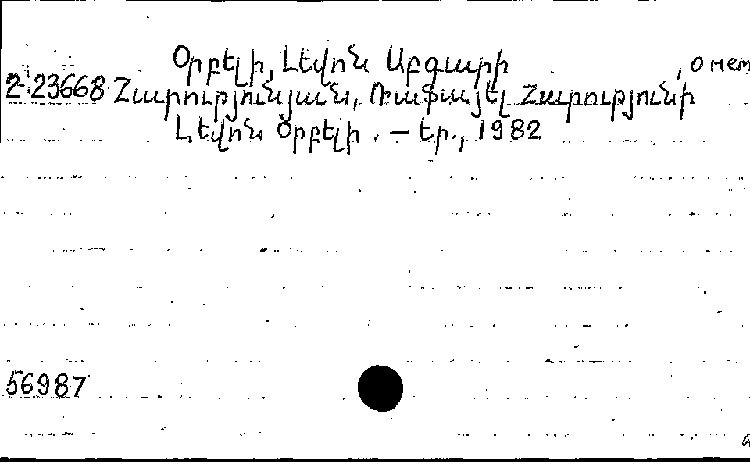 Օրբելի, Լևոն Աբգարի , о нем
2-23668 Հարությունյան, Ռաֆայել Հարությունի
Լևոն Օրբելի. – Եր., 1982
56987